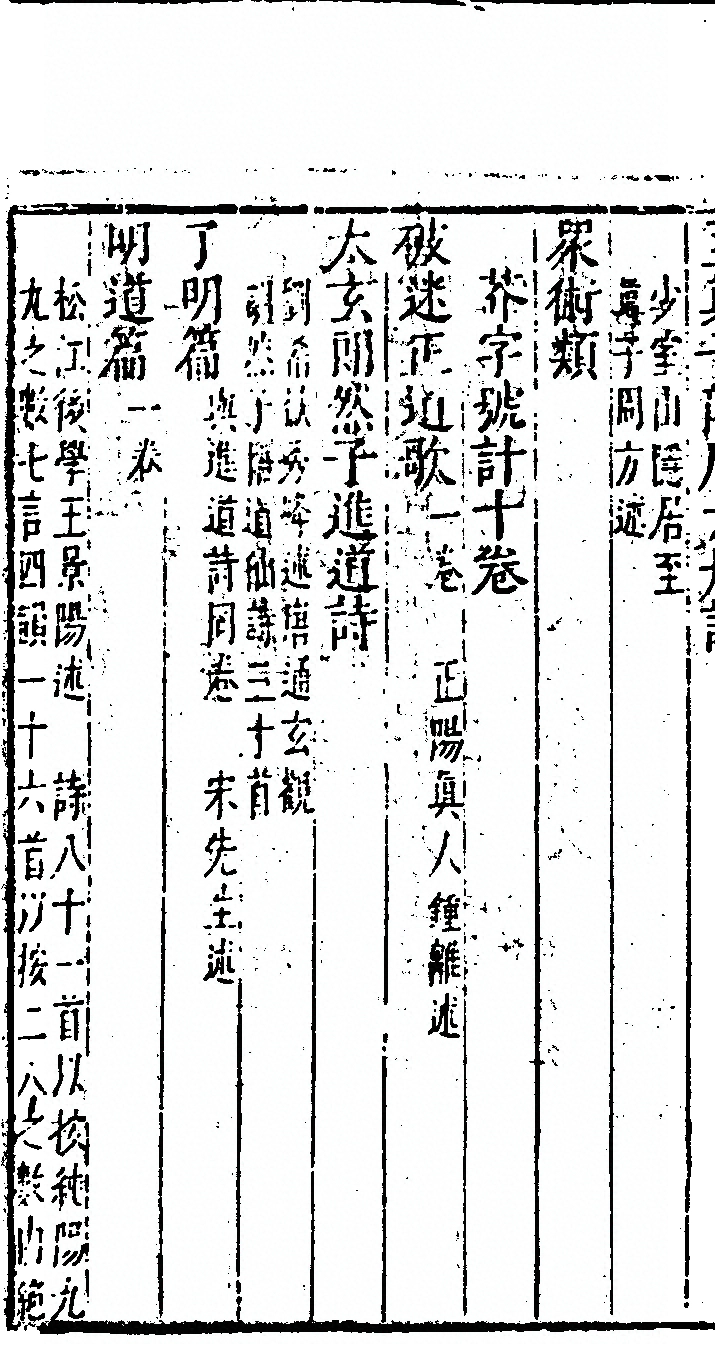 少室山隱居至
眞子周方述
衆術類
芥字號計十卷
破迷正道歌一卷 正陽眞人鍾離述
太玄朗然子進道詩
劉希岳秀峰述 通玄觀
朗然子悟道仙詩三十首
了明篇
與進道詩同卷 宋先生述
明道篇一卷
松江後學王景陽述 詩八十一首以按純陽九
九之數七言四韻一十六首以按二八之數內絶